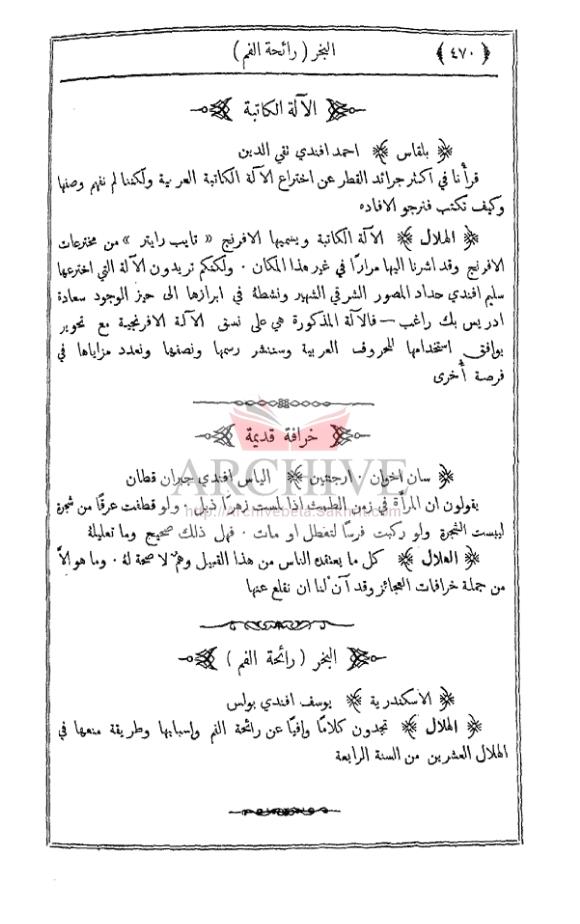 ﴿ ٤٧٠ ﴾ البخر ( رائحة الفم )
الآلة الكاتبة
﴿ بلقاس ﴾ احمد افندي تقي الدين
قرأنا في اكثر جرائد القطر عن اختراع الآلة الكاتبة العربية ولكننا لم نفهم وصفها
وكيف تكتب فنرجو الافاده
﴿ الهلال ﴾ الآلة الكاتبة ويسميها الافرنج « تايب رايتر » من مخترعات
الافرنج وقد اشرنا اليها مرارًا في غير هذا المكان ٠ ولكنكم تريدون الآلة التي اخترعها
سليم افندي حداد المصور الشرقي الشهير ونشطهُ في ابرازها الى حيز الوجود سعادة
ادريس بك راغب – فالآلة المذكورة هي على نسق الآلة الافرنجية مع تحوير
يوافق استخدامها للحروف العربية وسننشر رسمها ونصفها ونعدد مزاياها في
فرصة أخرى
خرافة قديمة
﴿ سان اخوان ٠ ارجنتين ﴾ الياس افندي جبران قطان
يقولون ان المرأة في زمن الطمث اذا لمست زهرًا ذبل ٠ ولو قطفت عرقًا من شجرة
ليبست الشجرة ولو ركبت فرسًا لتعطل او مات ٠ فهل ذلك صحيح وما تعليلهُ
﴿ الهلال ﴾ كل ما يعتقدهُ الناس من هذا القبيل وهمٌ لا صحة لهُ ٠ وما هو الاَّ
من جملة خرافات العجائز وقد آن لنا ان نقلع عنها
البخر ( رائحة الفم )
﴿ الاسكندرية ﴾ يوسف افندي بولس
﴿ الهلال ﴾ تجدون كلامًا وافيًا عن رائحة الفم واسبابها وطريقة منعها في
الهلال العشرين من السنة الرابعة
ARCHIVE
http://archivebeta.Sakhrit.com